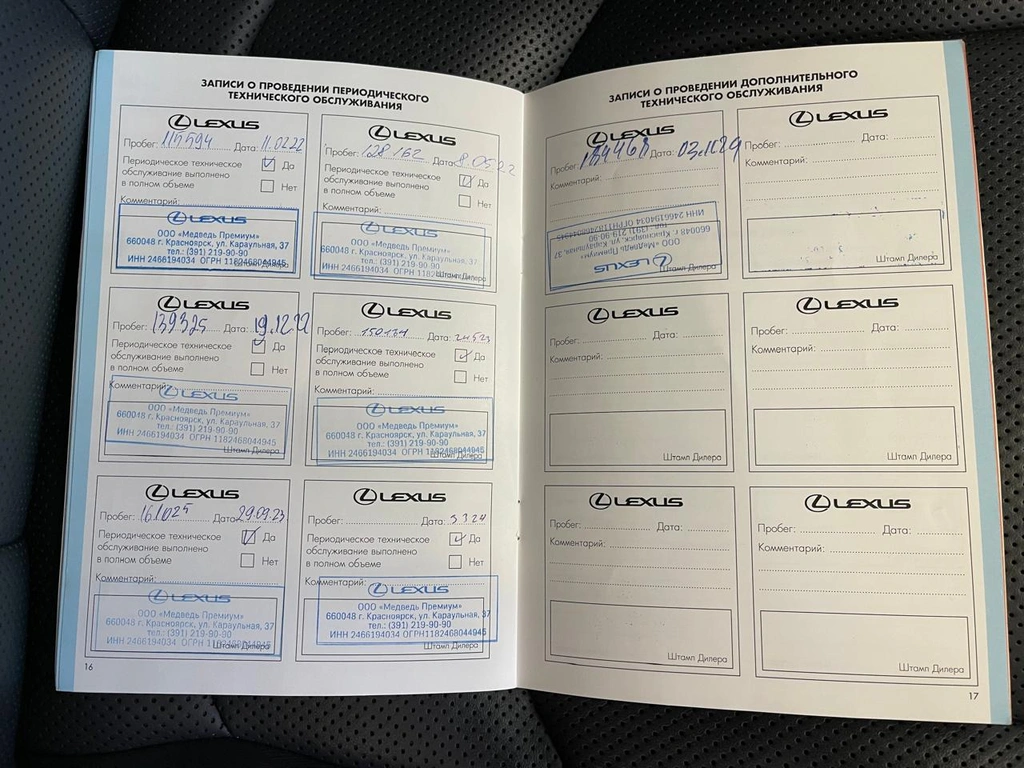 ЗАПИСИ О ПРОВЕДЕНИИ ПЕРИОДИЧЕСКОГО
ТЕХНИЧЕСКОГО ОБСЛУЖИВАНИЯ
LEXUS
Пробег: 115594 Дата: 11.02.22
Периодическое техническое
обслуживание выполнено
в полном объеме
Да
Нет
Комментарий:
LEXUS
ООО «Медведь Премиум»
660048 г. Красноярск, ул. Караульная, 37
тел.: (391) 219-90-90
ИНН 2466194034 ОГРН 1182468044945
Штамп Дилера
LEXUS
Пробег: 128162 Дата: 8.05.22
Периодическое техническое
обслуживание выполнено
в полном объеме
Да
Нет
Комментарий:
LEXUS
ООО «Медведь Премиум»
660048 г. Красноярск, ул. Караульная, 37
тел.: (391) 219-90-90
ИНН 2466194034 ОГРН
Штамп Дилера
LEXUS
Пробег: 139325 Дата: 19.12.22
Периодическое техническое
обслуживание выполнено
в полном объеме
Да
Нет
Комментарий:
LEXUS
ООО «Медведь Премиум»
660048 г. Красноярск, ул. Караульная, 37
тел.: (391) 219-90-90
ИНН 2466194034 ОГРН 1182468044945
Штамп Дилера
LEXUS
Пробег: Дата:
Периодическое техническое
обслуживание выполнено
в полном объеме
Да
Нет
Комментарий:
LEXUS
ООО «Медведь Премиум»
660048 г. Красноярск, ул. Караульная, 37
тел.: (391) 219-90-90
ИНН 2466194034 ОГРН 1182468044945
Штамп Дилера
LEXUS
Пробег: 161025 Дата: 29.09.23
Периодическое техническое
обслуживание выполнено
в полном объеме
Да
Нет
Комментарий:
LEXUS
ООО «Медведь Премиум»
660048 г. Красноярск, ул. Караульная, 37
тел.: (391) 219-90-90
ИНН 2466194034 ОГРН 1182468044945
Штамп Дилера
LEXUS
Пробег: Дата: 3.3.24
Периодическое техническое
обслуживание выполнено
в полном объеме
Да
Нет
Комментарий:
LEXUS
ООО «Медведь Премиум»
660048 г. Красноярск, ул. Караульная, 37
тел.: (391) 219-90-90
ИНН 2466194034 ОГРН1182468044945
Штамп Дилера
16
ЗАПИСИ О ПРОВЕДЕНИИ ДОПОЛНИТЕЛЬНОГО
ТЕХНИЧЕСКОГО ОБСЛУЖИВАНИЯ
LEXUS
Пробег: Дата:
Комментарий:
LEXUS
ООО «Медведь Премиум»
660048 г. Красноярск, ул. Караульная, 37
тел.: (391) 219-90-90
ИНН 2466194034 ОГРН1182468044945
Штамп Дилера
LEXUS
Пробег: Дата:
Комментарий:
Штамп Дилера
LEXUS
Пробег: Дата:
Комментарий:
Штамп Дилера
LEXUS
Пробег: Дата:
Комментарий:
Штамп Дилера
LEXUS
Пробег: Дата:
Комментарий:
Штамп Дилера
LEXUS
Пробег: Дата:
Комментарий:
Штамп Дилера
17